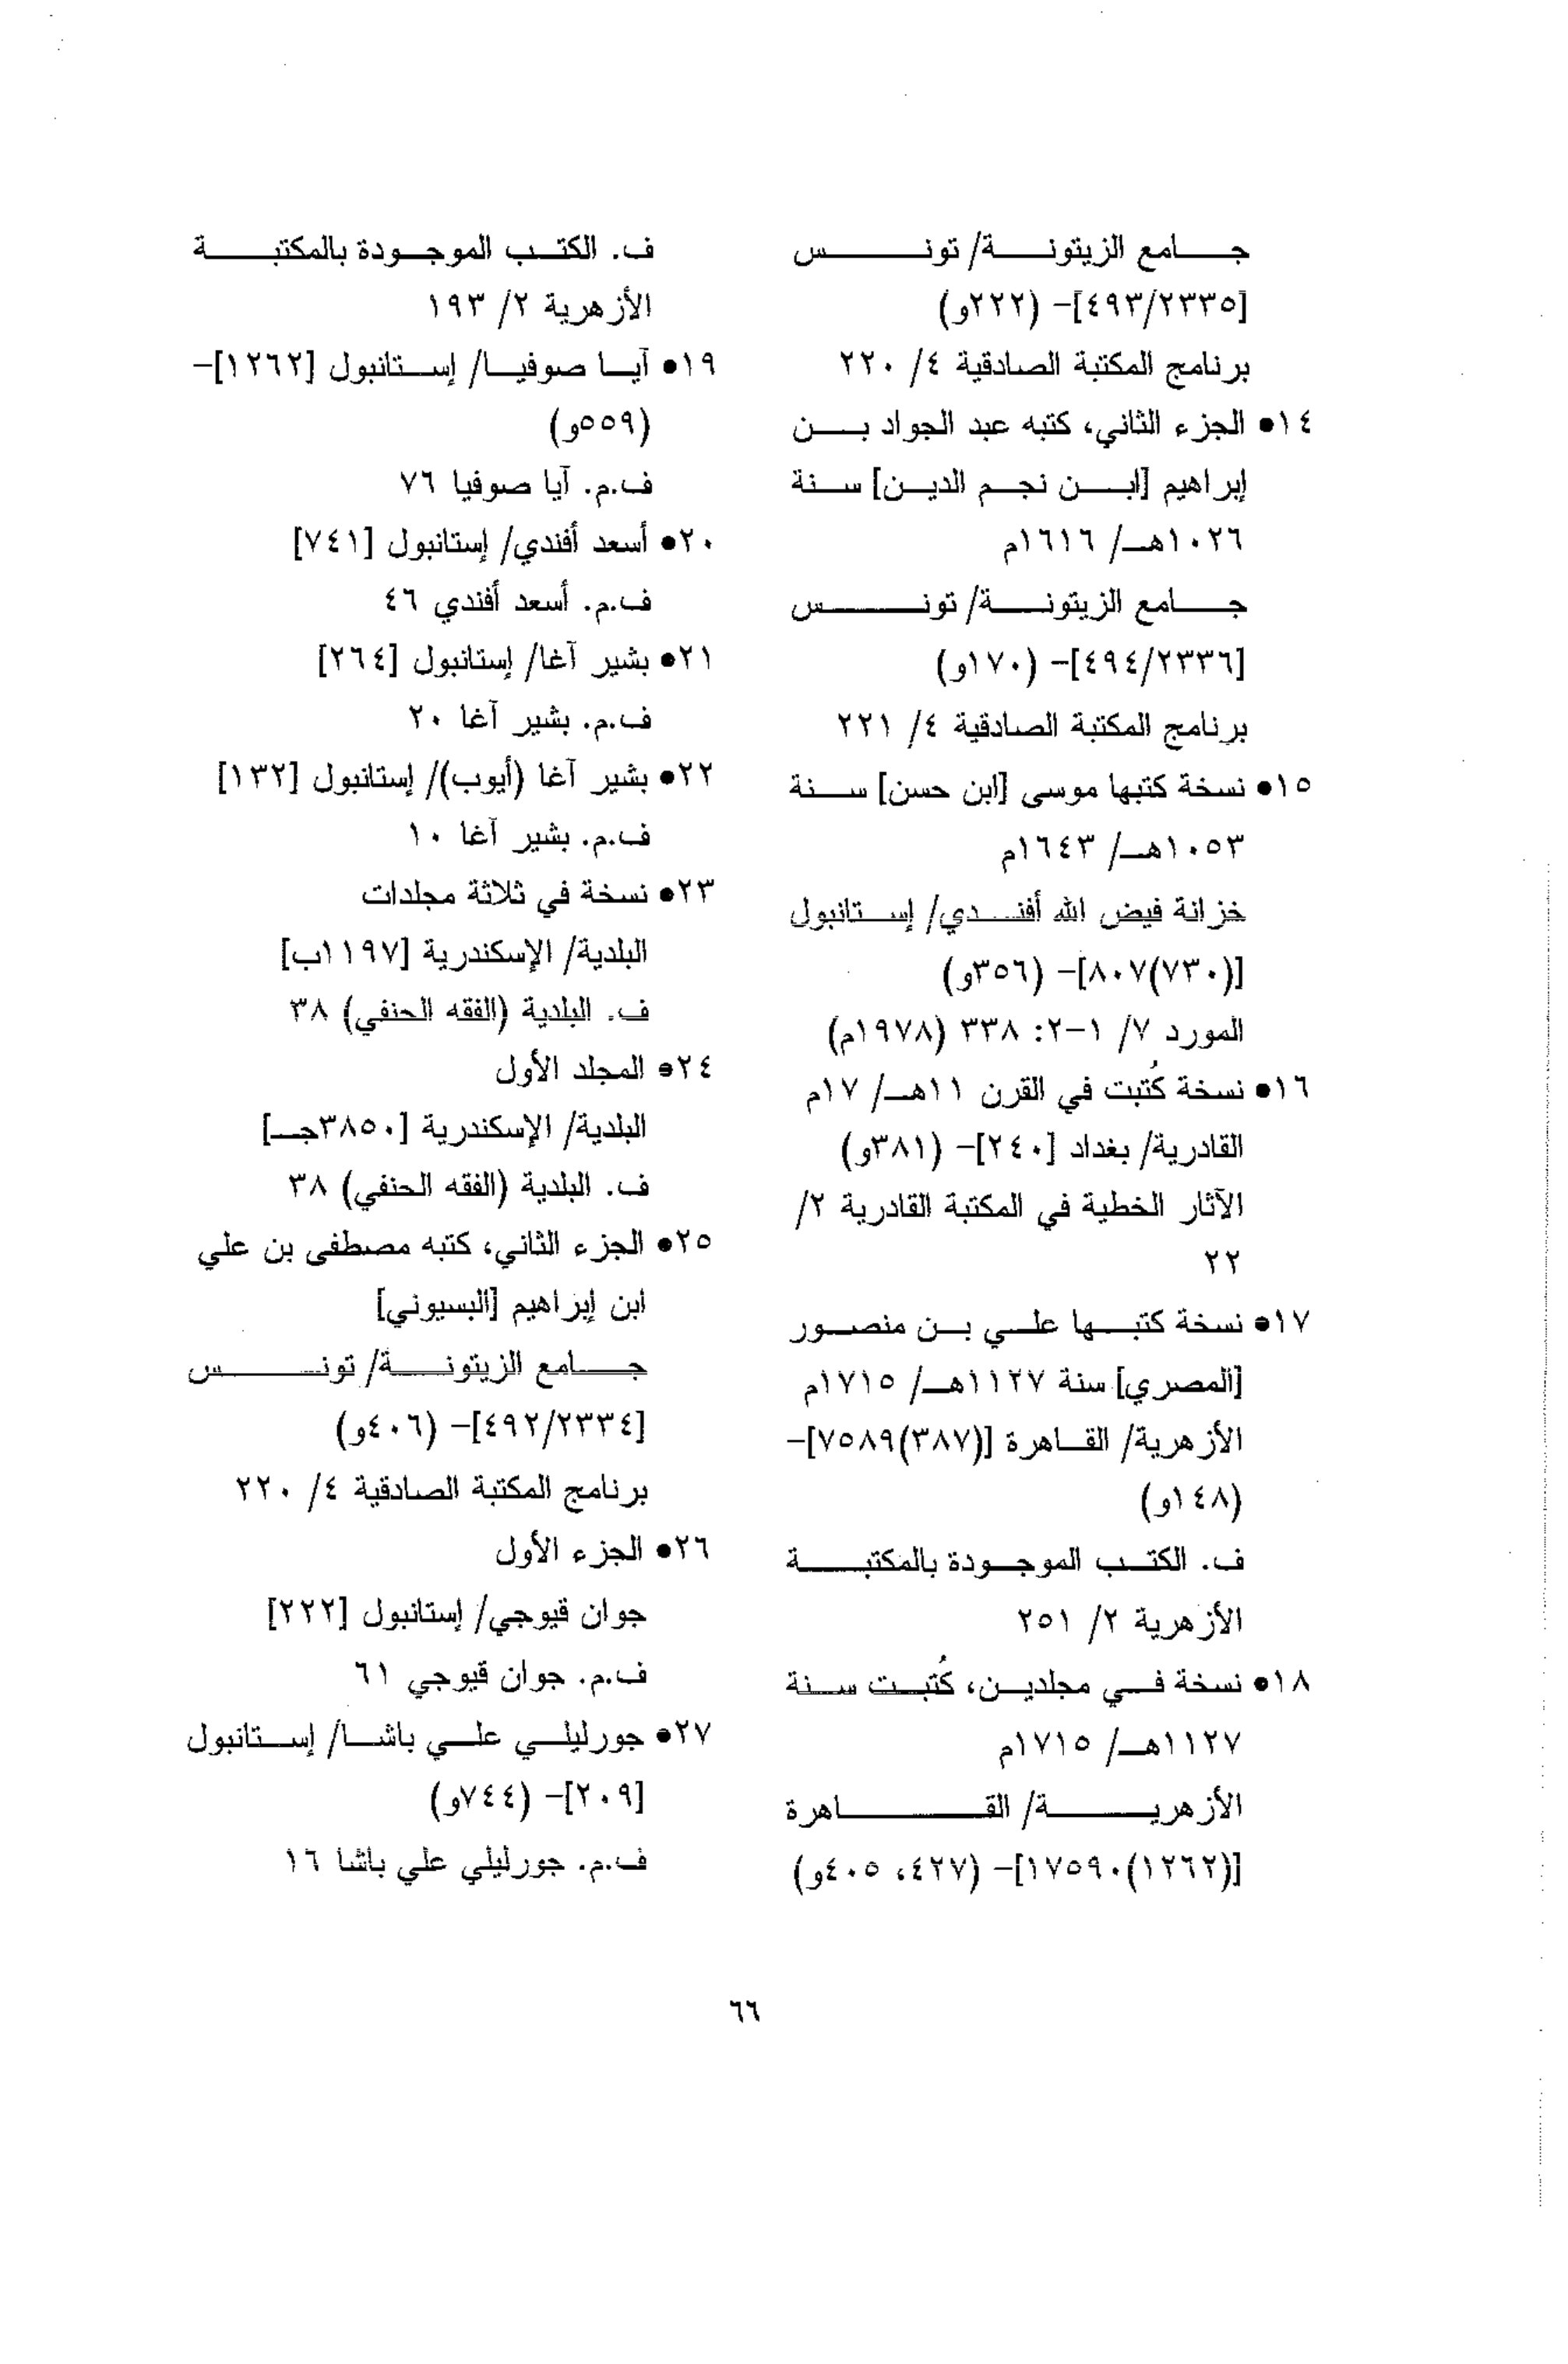 جامع الزيتونة/ تونس
[٤٩٣/٢٣٣٥]- (٢٢٢و)
برنامج المكتبة الصادقية ٤/ ٢٢٠
١٤● الجزء الثاني، كتبه عبد الجواد بن
إبراهيم [ابن نجم الدين] سنة
١٠٢٦هـ/ ١٦١٦م
جامع الزيتونة/ تونس
[٤٩٤/٢٣٣٦]- (١٧٠و)
برنامج المكتبة الصادقية ٤/ ٢٢١
١٥● نسخة كتبها موسى [ابن حسن] سنة
١٠٥٣هـ/ ١٦٤٣م
خزانة فيض الله أفندي/ إستانبول
[(٧٣٠)٨٠٧]- (٣٥٦و)
المورد ٧/ ١-٢: ٣٣٨ (١٩٧٨م)
١٦● نسخة كُتبت في القرن ١١هـ/ ١٧م
القادرية/ بغداد [٢٤٠]- (٣٨١و)
الآثار الخطية في المكتبة القادرية ٢/
٢٢
١٧● نسخة كتبها علي بن منصور
[المصري] سنة ١١٢٧هـ/ ١٧١٥م
الأزهرية/ القاهرة [(٣٨٧)٧٥٨٩]-
(١٤٨و)
ف. الكتب الموجودة بالمكتبة
الأزهرية ٢/ ٢٥١
١٨● نسخة في مجلدين، كُتبت سنة
١١٢٧هـ/ ١٧١٥م
الأزهرية/ القاهرة
[(١٢٦٢)١٧٥٩٠]- (٤٢٧، ٤٠٥و)
ف. الكتب الموجودة بالمكتبة
الأزهرية ٢/ ١٩٣
١٩● آيا صوفيا/ إستانبول [١٢٦٢]-
(٥٥٩و)
ف.م. آيا صوفيا ٧٦
٢٠● أسعد أفندي/ إستانبول [٧٤١]
ف.م. أسعد أفندي ٤٦
٢١● بشير آغا/ إستانبول [٢٦٤]
ف.م. بشير آغا ٢٠
٢٢● بشير آغا (أيوب)/ إستانبول [١٣٢]
ف.م. بشير آغا ١٠
٢٣● نسخة في ثلاثة مجلدات
البلدية/ الإسكندرية [١١٩٧ب]
ف. البلدية (الفقه الحنفي) ٣٨
٢٤● المجلد الأول
البلدية/ الإسكندرية [٣٨٥٠جـ]
ف. البلدية (الفقه الحنفي) ٣٨
٢٥● الجزء الثاني، كتبه مصطفى بن علي
ابن إبراهيم [البسيوني]
جامع الزيتونة/ تونس
[٤٩٢/٢٣٣٤]- (٤٠٦و)
برنامج المكتبة الصادقية ٤/ ٢٢٠
٢٦● الجزء الأول
جوان قيوجي/ إستانبول [٢٢٢]
ف.م. جوان قيوجي ٦١
٢٧● جورليلي علي باشا/ إستانبول
[٢٠٩]- (٧٤٤و)
ف.م. جورليلي علي باشا ١٦
٦٦